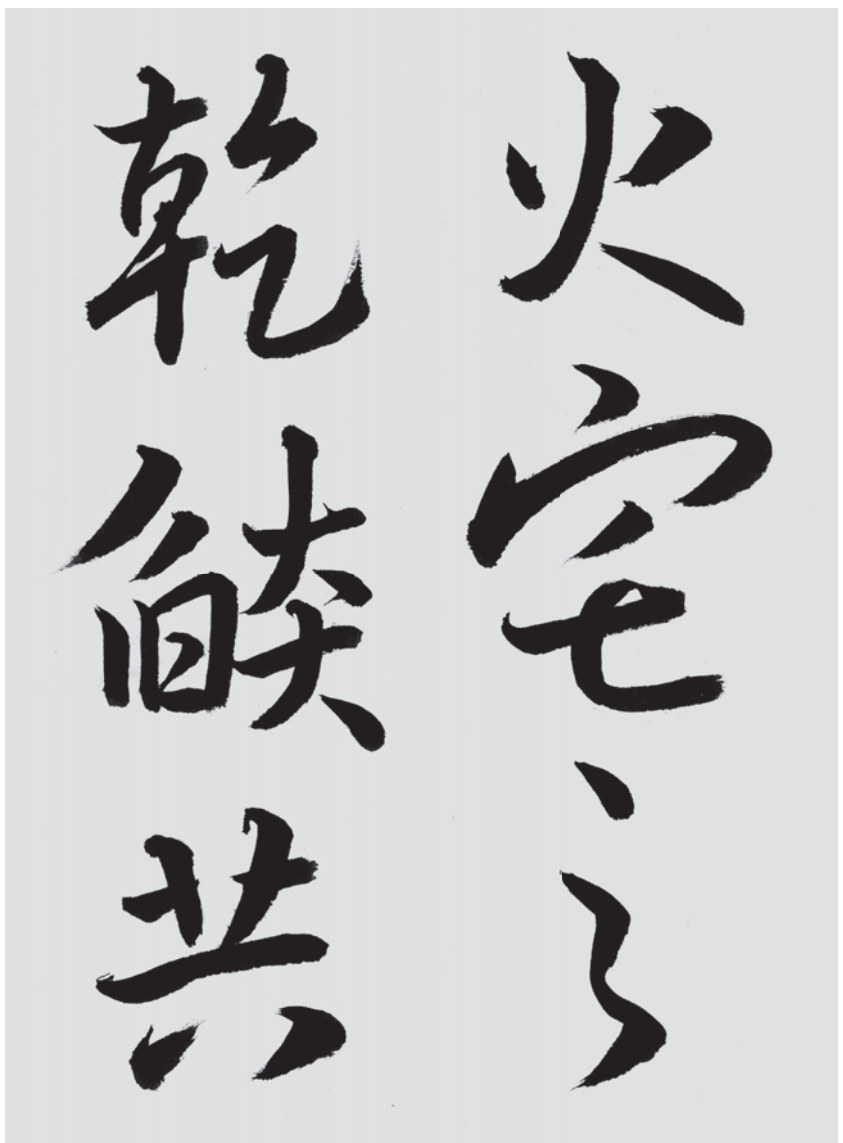 火宅之
乾燄共